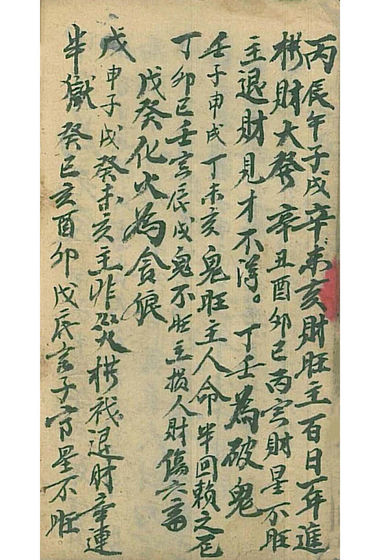 丙辰午子戌辛未亥財旺主百日一年進
横財大發辛丑酉卯巳丙亥財星不旺
主退財見才不浮。丁壬為破鬼
壬子申戌丁未亥鬼旺主人命牛回賴之厄
丁卯巳壬言辰戌鬼不旺主損人財傷六畜
戊癸化火為貪狼
戊申子戌癸未亥主非災横禍退財牽連
牛獄癸巳亥酉卯戊辰言子官星不旺